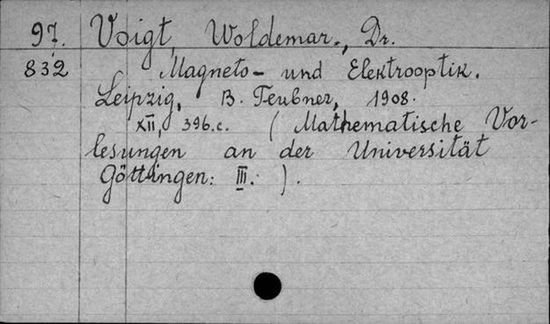 97. Voigt, Woldemar., Dr.
832 Magneto- und Elektrooptik.
Leipzig, B. Teubner, 1908.
XII, 396.c. (Mathematische Vor-
lesungen an der Universität
Göttingen: III.).